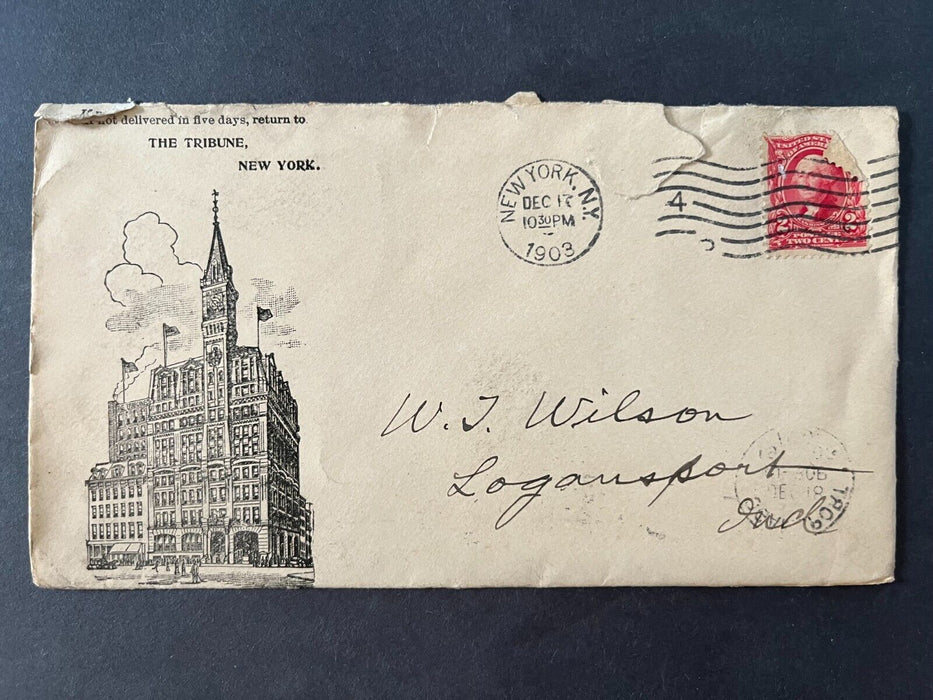 not delivered in five days, return to
THE TRIBUNE,
NEW YORK.
NEW YORK, N.Y.
DEC 17
10 30 PM
1903
4
UNITED STATES
OF AMERICA
2 2
POSTAGE
TWO CENTS
W. T. Wilson
Logansport
Ind
DEC 18